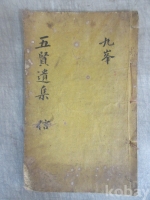 九峯
五賢遺集 信
kobay